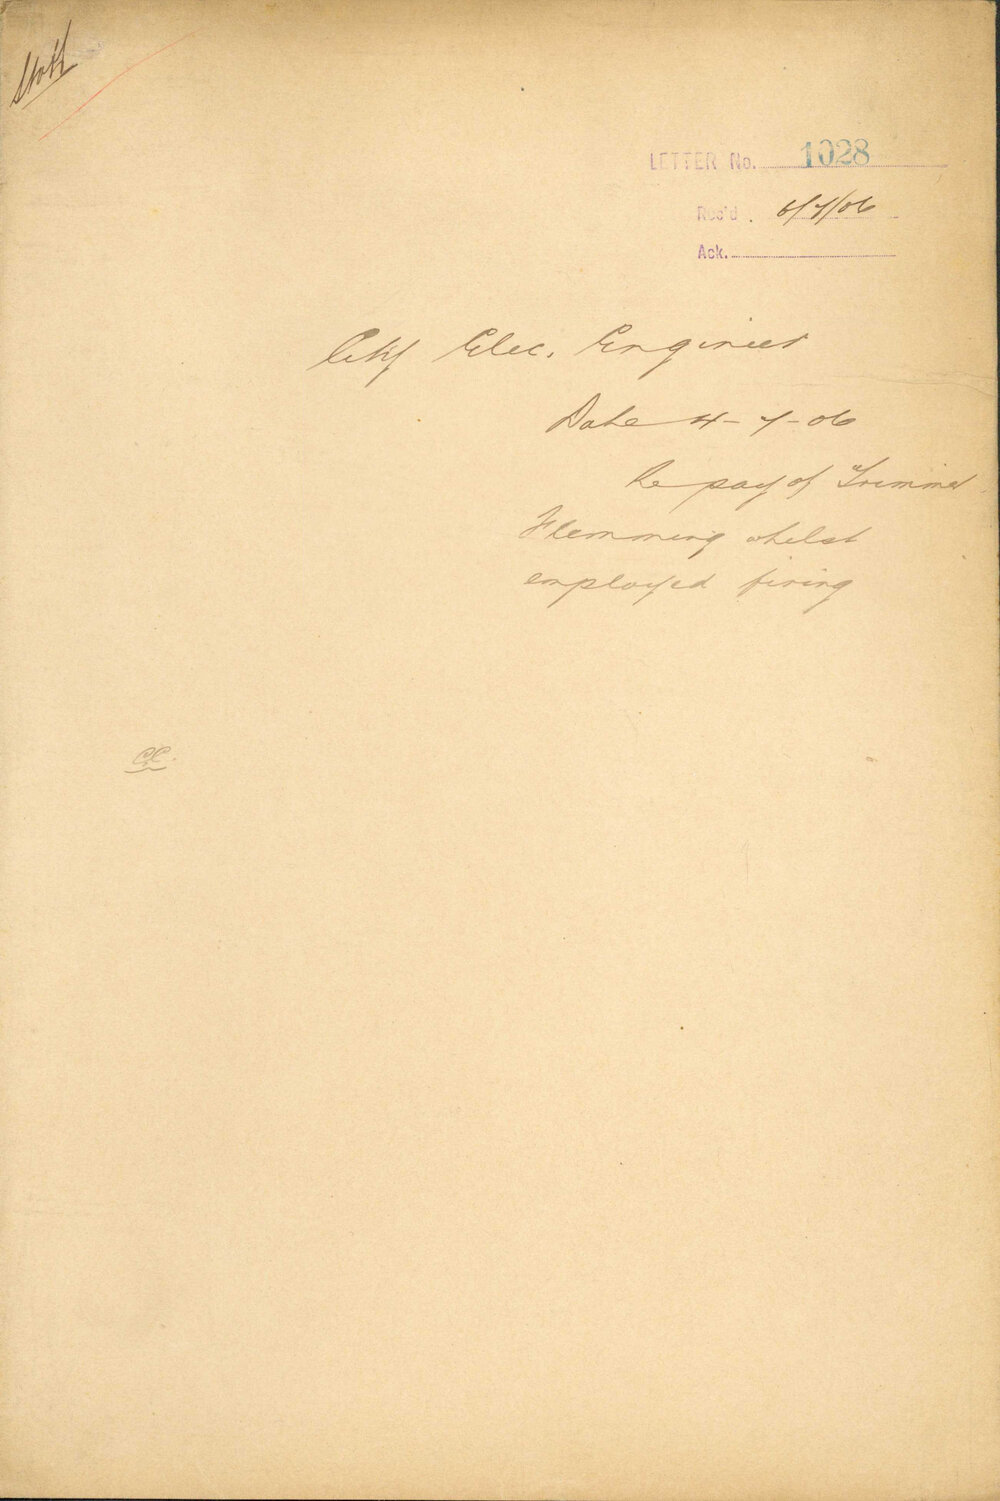 Staff
LETTER No. 1028
Rec'd. 6/7/06
Ack.
City Elec. Engineer
Date 4-7-06
Re pay of Trimmer
Flemming whilst
employed firing